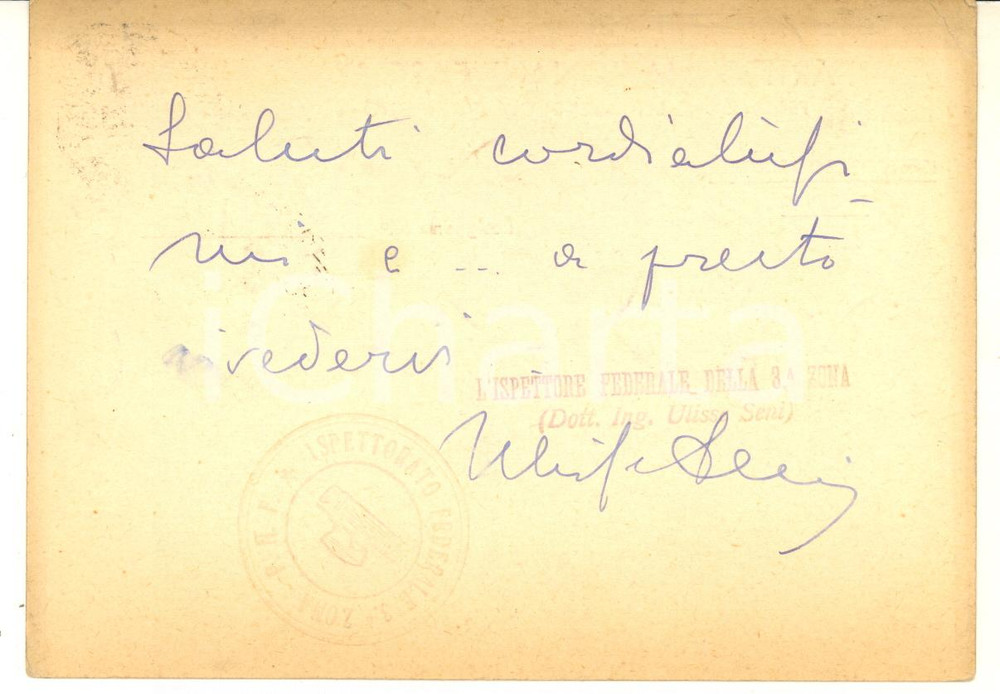 Saluti cordialissi-
mi e ... a presto
rivedervi
L'ISPETTORE FEDERALE DELLA 3.ª ZONA
(Dott. Ing. Ulisse Seni)
Ulisse Seni
P. N. F. * ISPETTORATO FEDERALE 3ª ZONA
iCharta